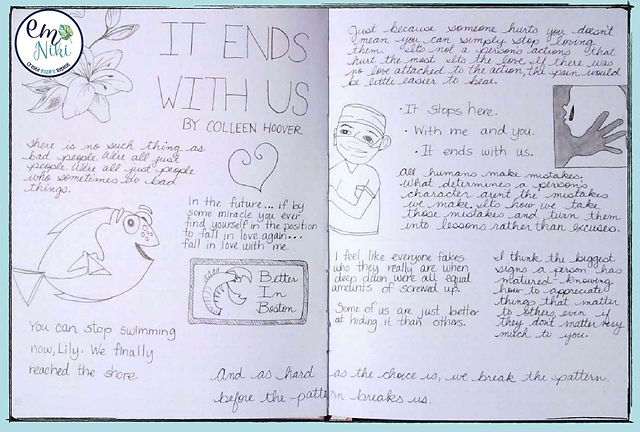 em
Niki
IT ENDS
WITH US
BY COLLEEN HOOVER
There is no such thing as
bad people. We're all just
people. We're all just people
who sometimes do bad
things.
In the future... if by
some miracle you ever
find yourself in the position
to fall in love again...
fall in love with me.
Better
In
Boston
You can stop swimming
now, Lily. We finally
reached the shore.
Just because someone hurts you doesn't
mean you can simply stop loving
them. It's not a person's actions that
hurt the most. It's the love. If there was
no love attached to the action, the pain would
be little easier to bear.
• It stops here.
• With me and you.
• It ends with us.
All humans make mistakes.
What determines a person's
character aren't the mistakes
we make. It's how we take
those mistakes and turn them
into lessons rather than excuses.
I feel like everyone fakes
who they really are when
deep down we're all equal
amounts of screwed up.
Some of us are just better
at hiding it than others.
I think the biggest
signs a person has
matured - knowing
how to appreciate
things that matter
to others, even if
they don't matter very
much to you.
And as hard as the choice is, we break the pattern
before the pattern breaks us.